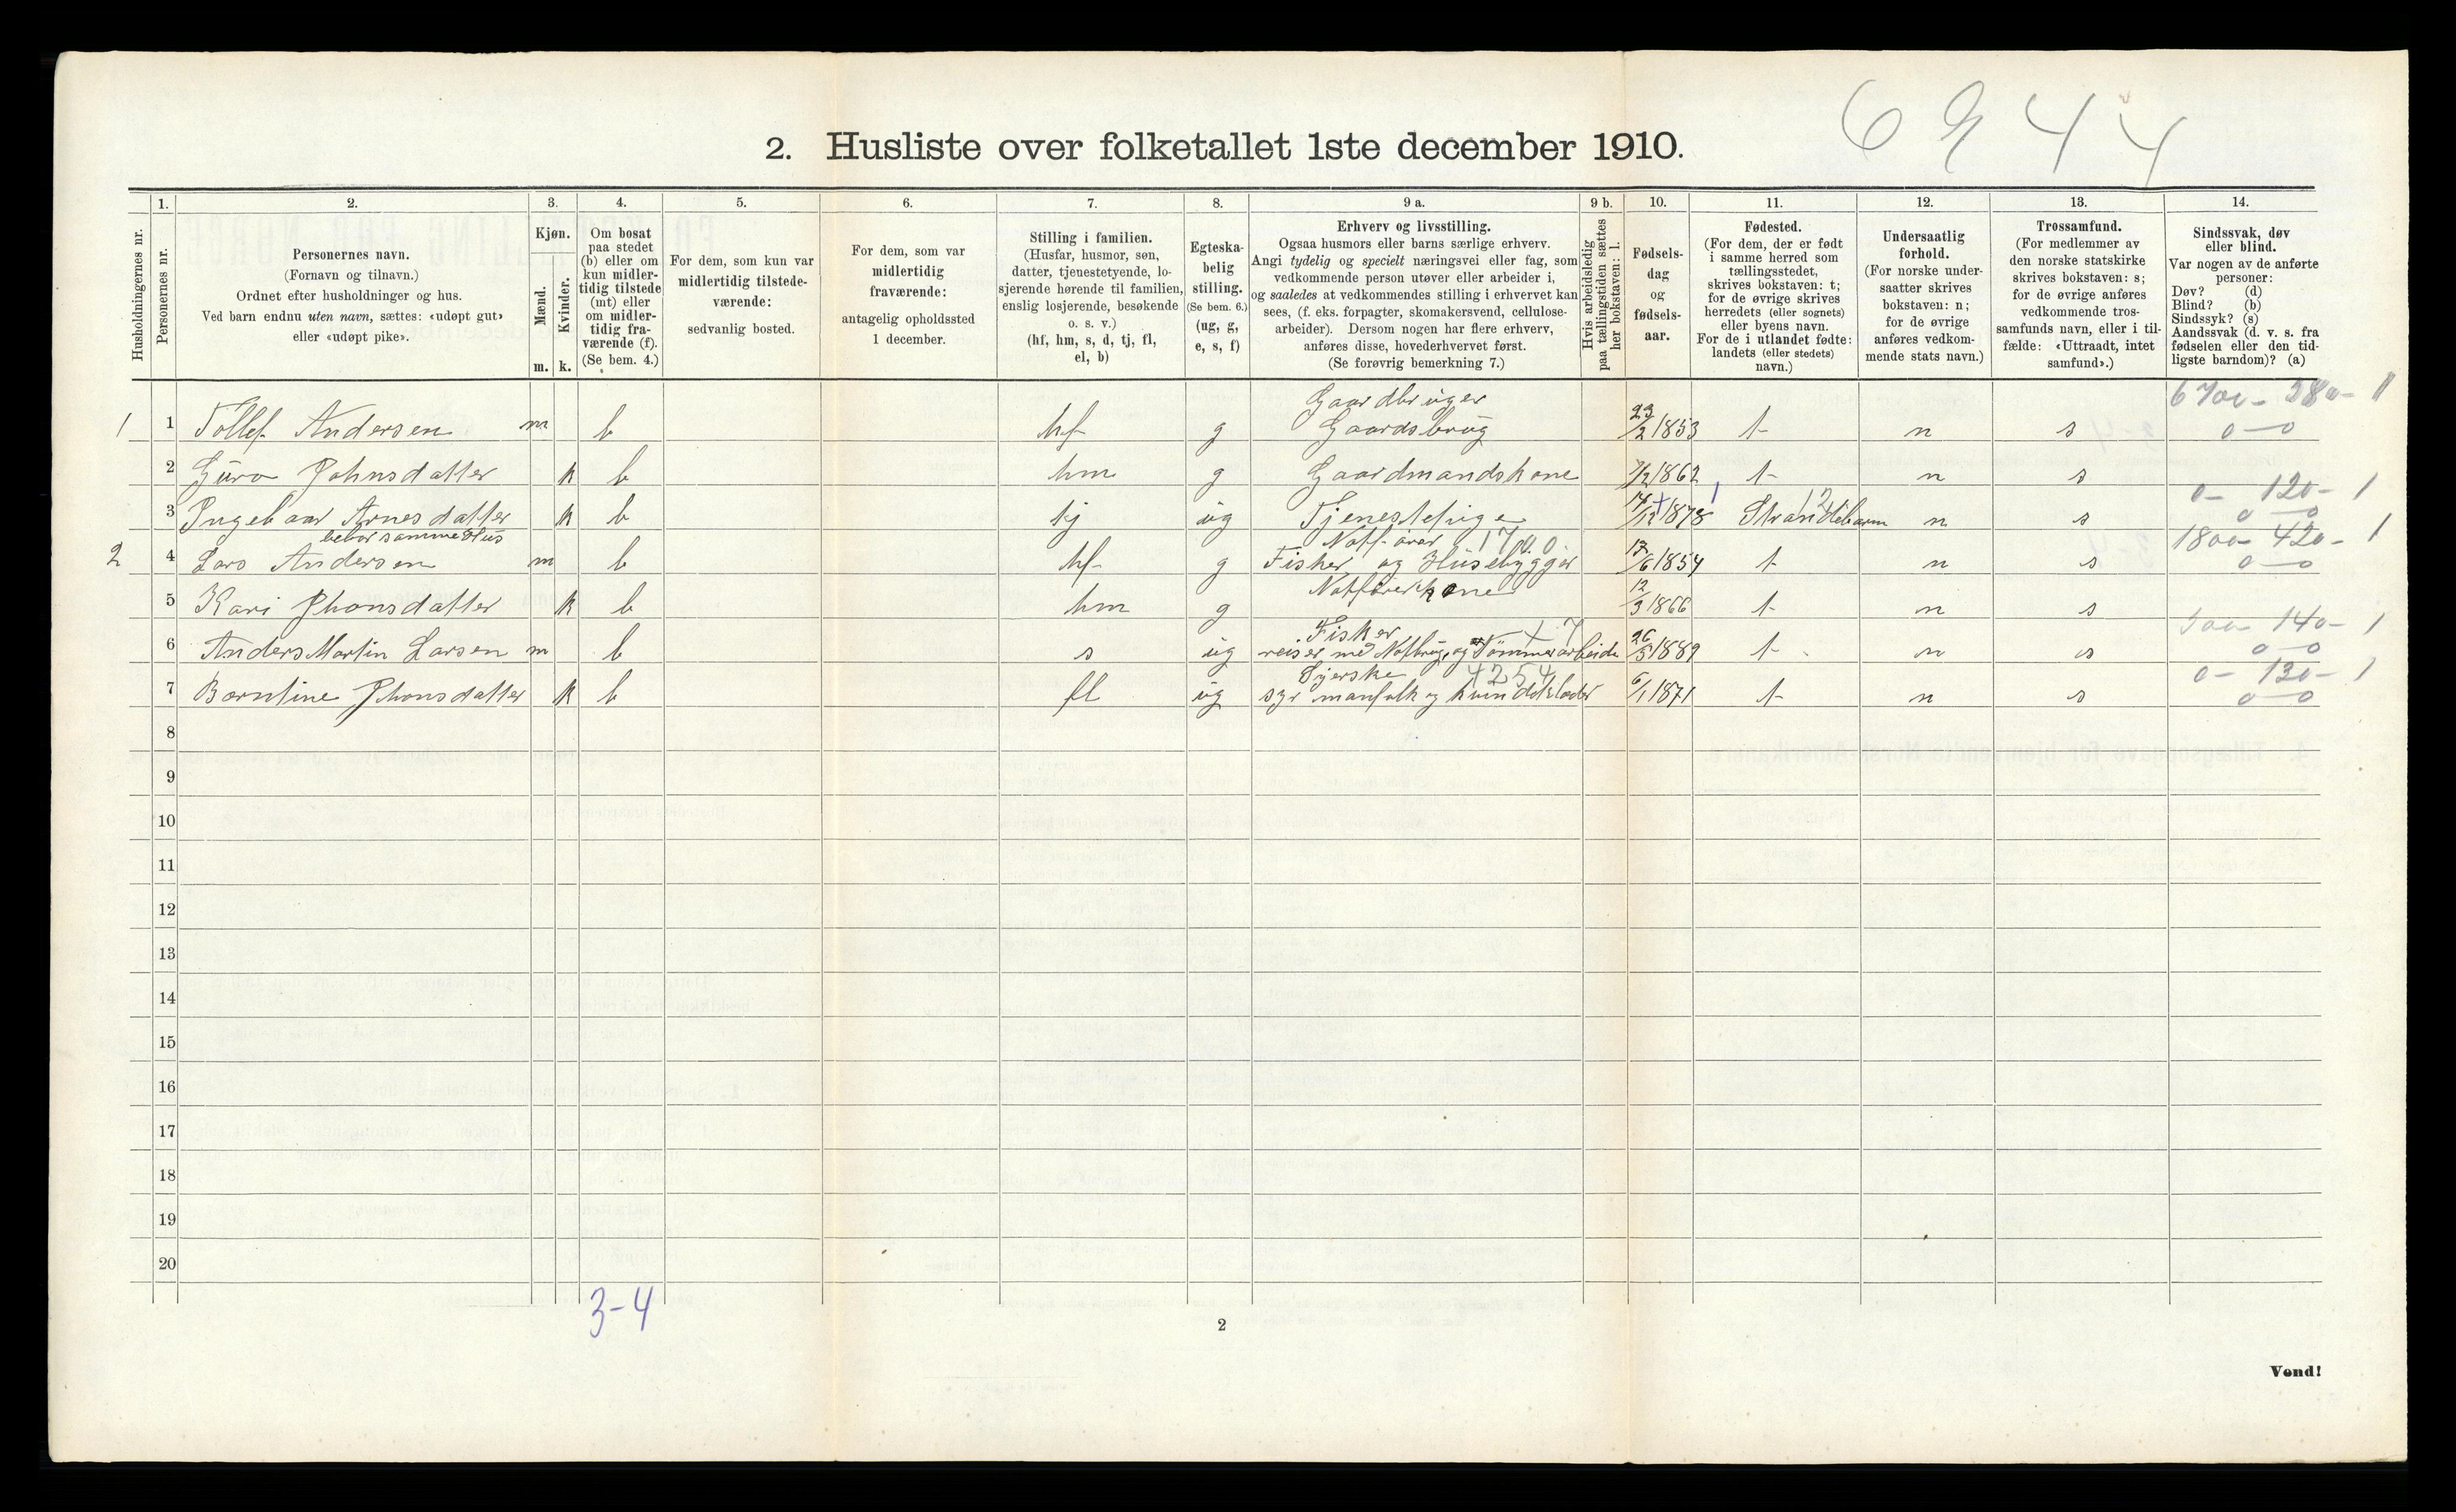 6 2 4 4
2. Husliste over folketallet 1ste december 1910.
Husholdningernes nr.
1.
Personernes nr.
2.
Personernes navn.
(Fornavn og tilnavn.)
Ordnet efter husholdninger og hus.
Ved barn endnu uten navn, sættes: «udøpt gut»
eller «udøpt pike».
3.
Kjøn.
Mænd.
Kvinder.
m. k.
4.
Om bosat
paa stedet
(b) eller om
kun midler-
tidig tilstede
(mt) eller
om midler-
tidig fra-
værende (f).
(Se bem. 4.)
5.
For dem, som kun var
midlertidig tilstede-
værende:
sedvanlig bosted.
6.
For dem, som var
midlertidig
fraværende:
antagelig opholdssted
1 december.
7.
Stilling i familien.
(Husfar, husmor, søn,
datter, tjenestetyende, lo-
sjerende hørende til familien,
enslig losjerende, besøkende
o. s. v.)
(hf, hm, s, d, tj, fl,
el, b)
8.
Egteska-
belig
stilling.
(Se bem. 6.)
(ug, g,
e, s, f)
9 a.
Erhverv og livsstilling.
Ogsaa husmors eller barns særlige erhverv.
Angi tydelig og specielt næringsvei eller fag, som
vedkommende person utøver eller arbeider i,
og saaledes at vedkommendes stilling i erhvervet kan
sees, (f. eks. forpagter, skomakersvend, cellulose-
arbeider). Dersom nogen har flere erhverv,
anføres disse, hovederhvervet først.
(Se forøvrig bemerkning 7.)
9 b.
Hvis arbeidsledig
paa tællingstiden sættes
her bokstaven: l.
10.
Fødsels-
dag
og
fødsels-
aar.
11.
Fødested.
(For dem, der er født
i samme herred som
tællingsstedet,
skrives bokstaven: t;
for de øvrige skrives
herredets (eller sognets)
eller byens navn.
For de i utlandet fødte:
landets (eller stedets)
navn.)
12.
Undersaatlig
forhold.
(For norske under-
saatter skrives
bokstaven: n;
for de øvrige
anføres vedkom-
mende stats navn.)
13.
Trossamfund.
(For medlemmer av
den norske statskirke
skrives bokstaven: s;
for de øvrige anføres
vedkommende tros-
samfunds navn, eller i til-
fælde: «Uttraadt, intet
samfund».)
14.
Sindssvak, døv
eller blind.
Var nogen av de anførte
personer:
Døv? (d)
Blind? (b)
Sindssyk? (s)
Aandssvak (d. v. s. fra
fødselen eller den tid-
ligste barndom)? (a)
Gaardbruger 6700- 380- 1
1 1 Tollef Andersen m b hf g Gaardsbrug 23/2 1853 t n s 0-0
2 Guro Johnsdatter k b hm g Gaardmandskone 7/2 1862 t n s
0- 120- 1
3 Ingebaar Arnesdatter k b tj ug Tjenestepige 14/12 1878 Strandebarm 12 n s 0-0
bebor samme Hus 1700 1800- 420- 1
2 4 Lars Andersen m b hf g Fisker og Husebygger 13/6 1854 t n s 0-0
Notførerkone
5 Kari Jhonsdatter k b hm g 12/3 1866 t n s
Fisker 140- 1
6 Anders Martin Larsen m b s ug reiser med Notbrug og Tømmerarbeide 26/5 1889 t n s 0-0
Syerske 4254 0- 130- 1
7 Berntine Jhonsdatter k b fl ug syr manfolk og kvindeklæder 6/1 1871 t n s 0-0
8
9
10
11
12
13
14
15
16
17
18
19
20
3-4
2
Vend!